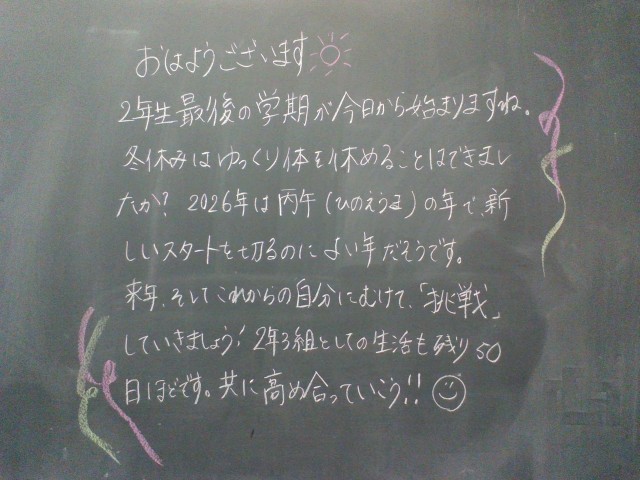 おはようございます
2年生最後の学期が今日から始まりますね。
冬休みはゆっくり体を休めることはできまし
たか？ 2026年は丙午(ひのえうま)の年で、新
しいスタートを切るのによい年だそうです。
来年、そしてこれからの自分にむけて、「挑戦」
していきましょう！2年3組としての生活も残り50
日ほどです。共に高め合っていこう!!